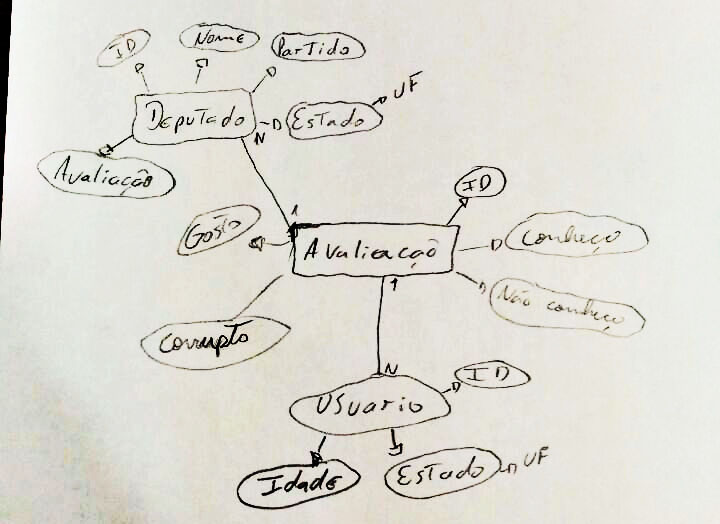 ID
Nome
Partido
Deputado
Estado
UF
N
Avaliação
1
ID
Gosto
Avaliação
Conheço
Não conheço
1
Corrupto
N
Usuario
ID
Idade
Estado
UF